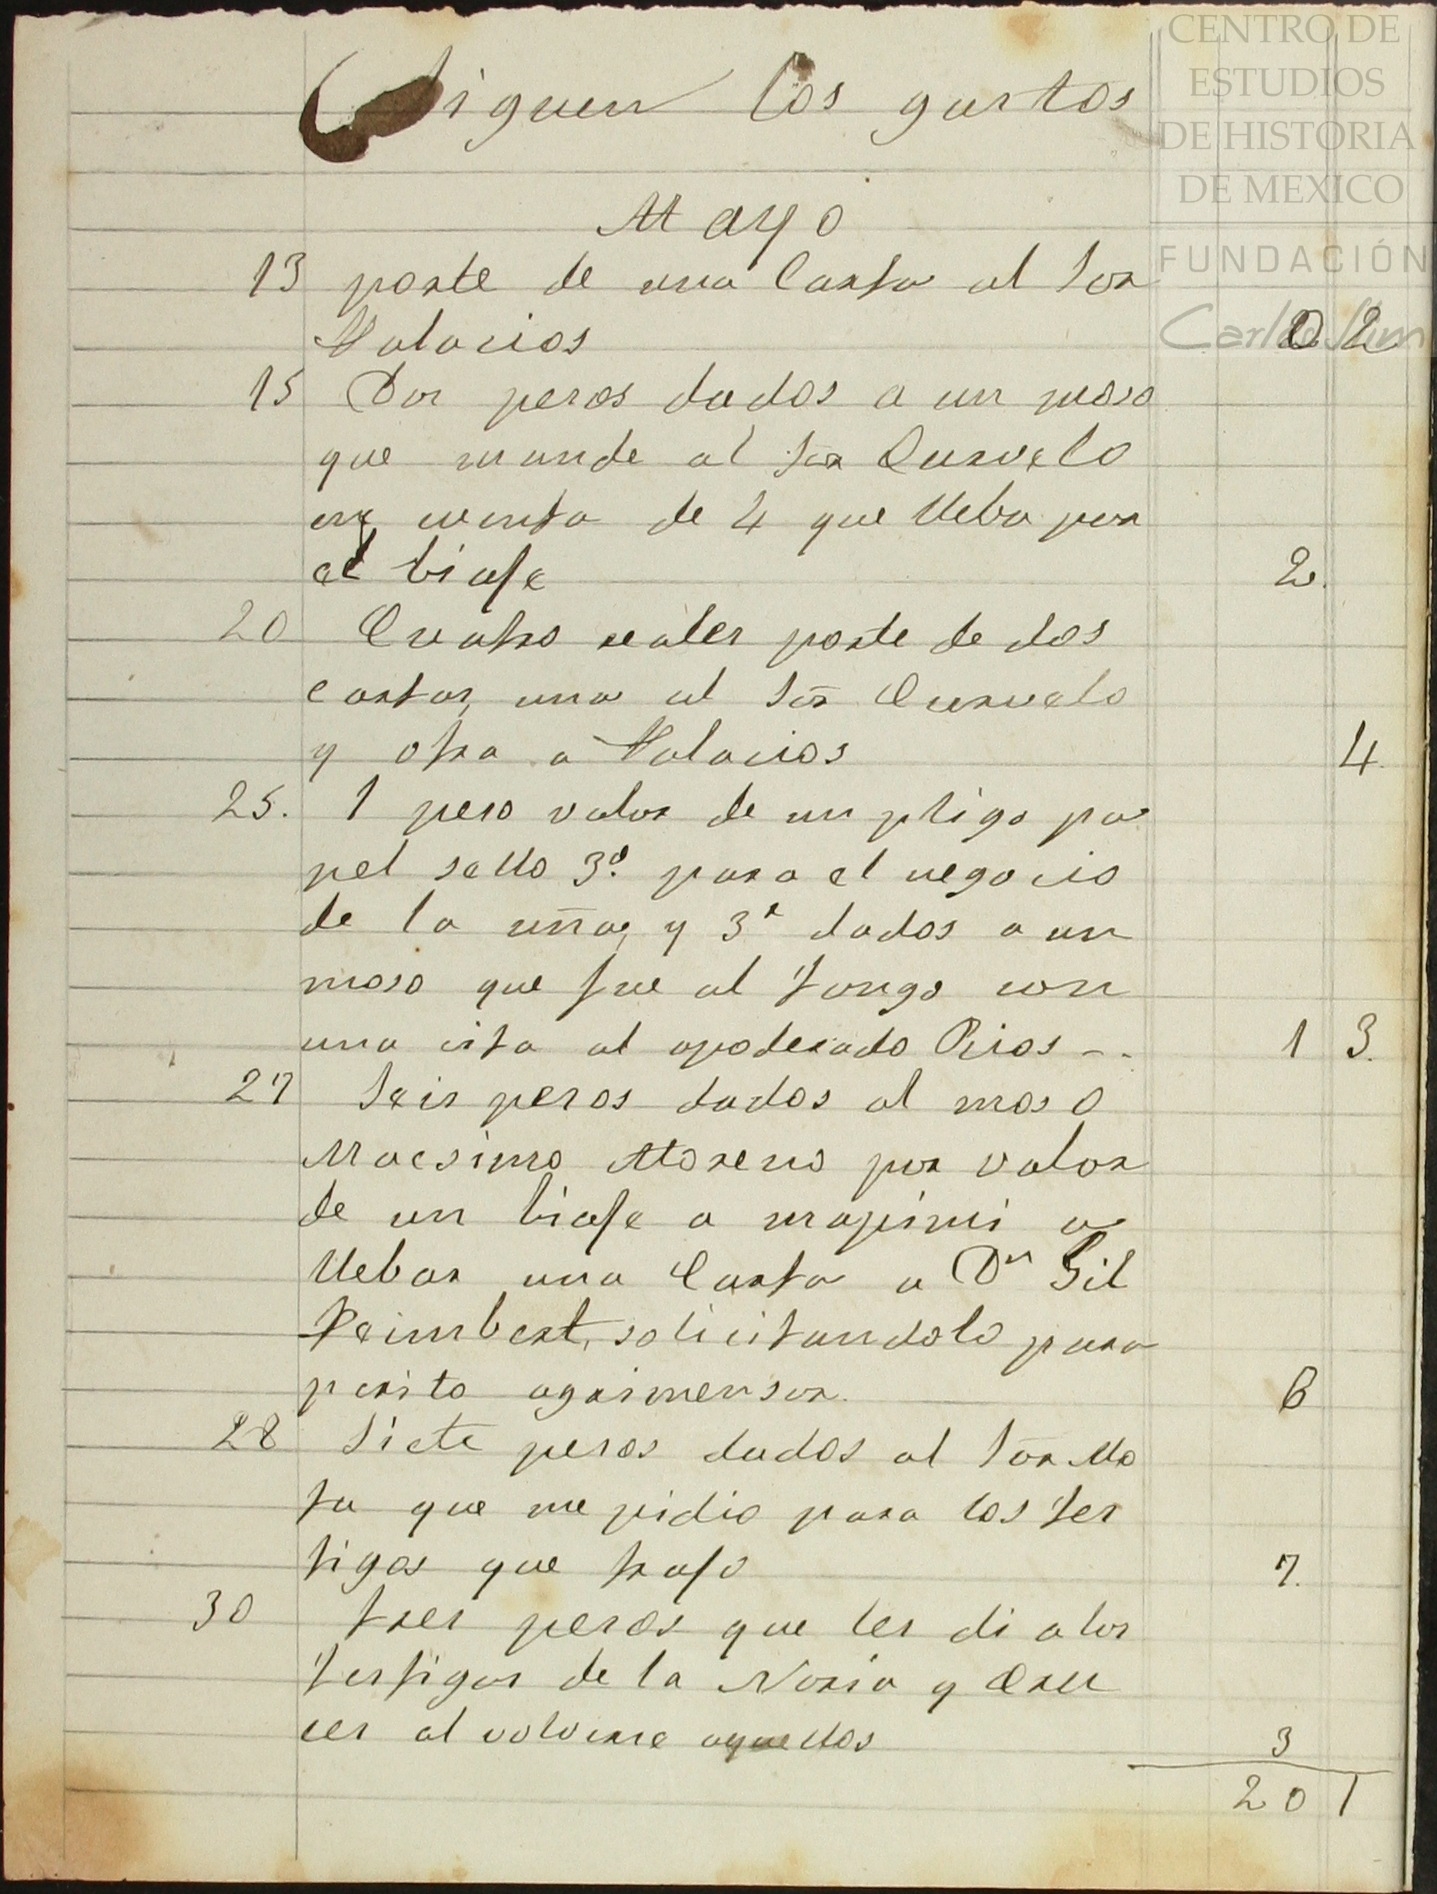 CENTRO DE
ESTUDIOS
DE HISTORIA
DE MEXICO
FUNDACIÓN
Carlos Slim
Siguen los gastos
Mayo
13 porte de una Carta al Sor
Palacios 0 2
15 Dos pesos dados a un moso
que mande al Sor Curvelo
en cuenta de 4 que lleba por
el biaje 2.
20 Cuatro reales porte de dos
cartas, una al Sor Curvelo
y otra a Palacios 4.
25. 1 peso valor de un pligo pa
pel sello 3º. para el negocio
de la uña, y 3r dados a un
moso que fue al Tongo con
una cita al apoderado Rios -. 1 3.
27 Seis pesos dados al moso
Macsimo Moreno por valor
de un biaje a mapimi a
llebar una Carta a Dn Gil
Reimbert, solicitandolo para
perito agrimensor. 6
28 Siete pesos dados al Sor Mo
ta que me pidio para los tes
tigos que trajo 7.
30 tres pesos que les di a los
testigos de la Noria y Cru
ces al volverse aquellos 3
20 1